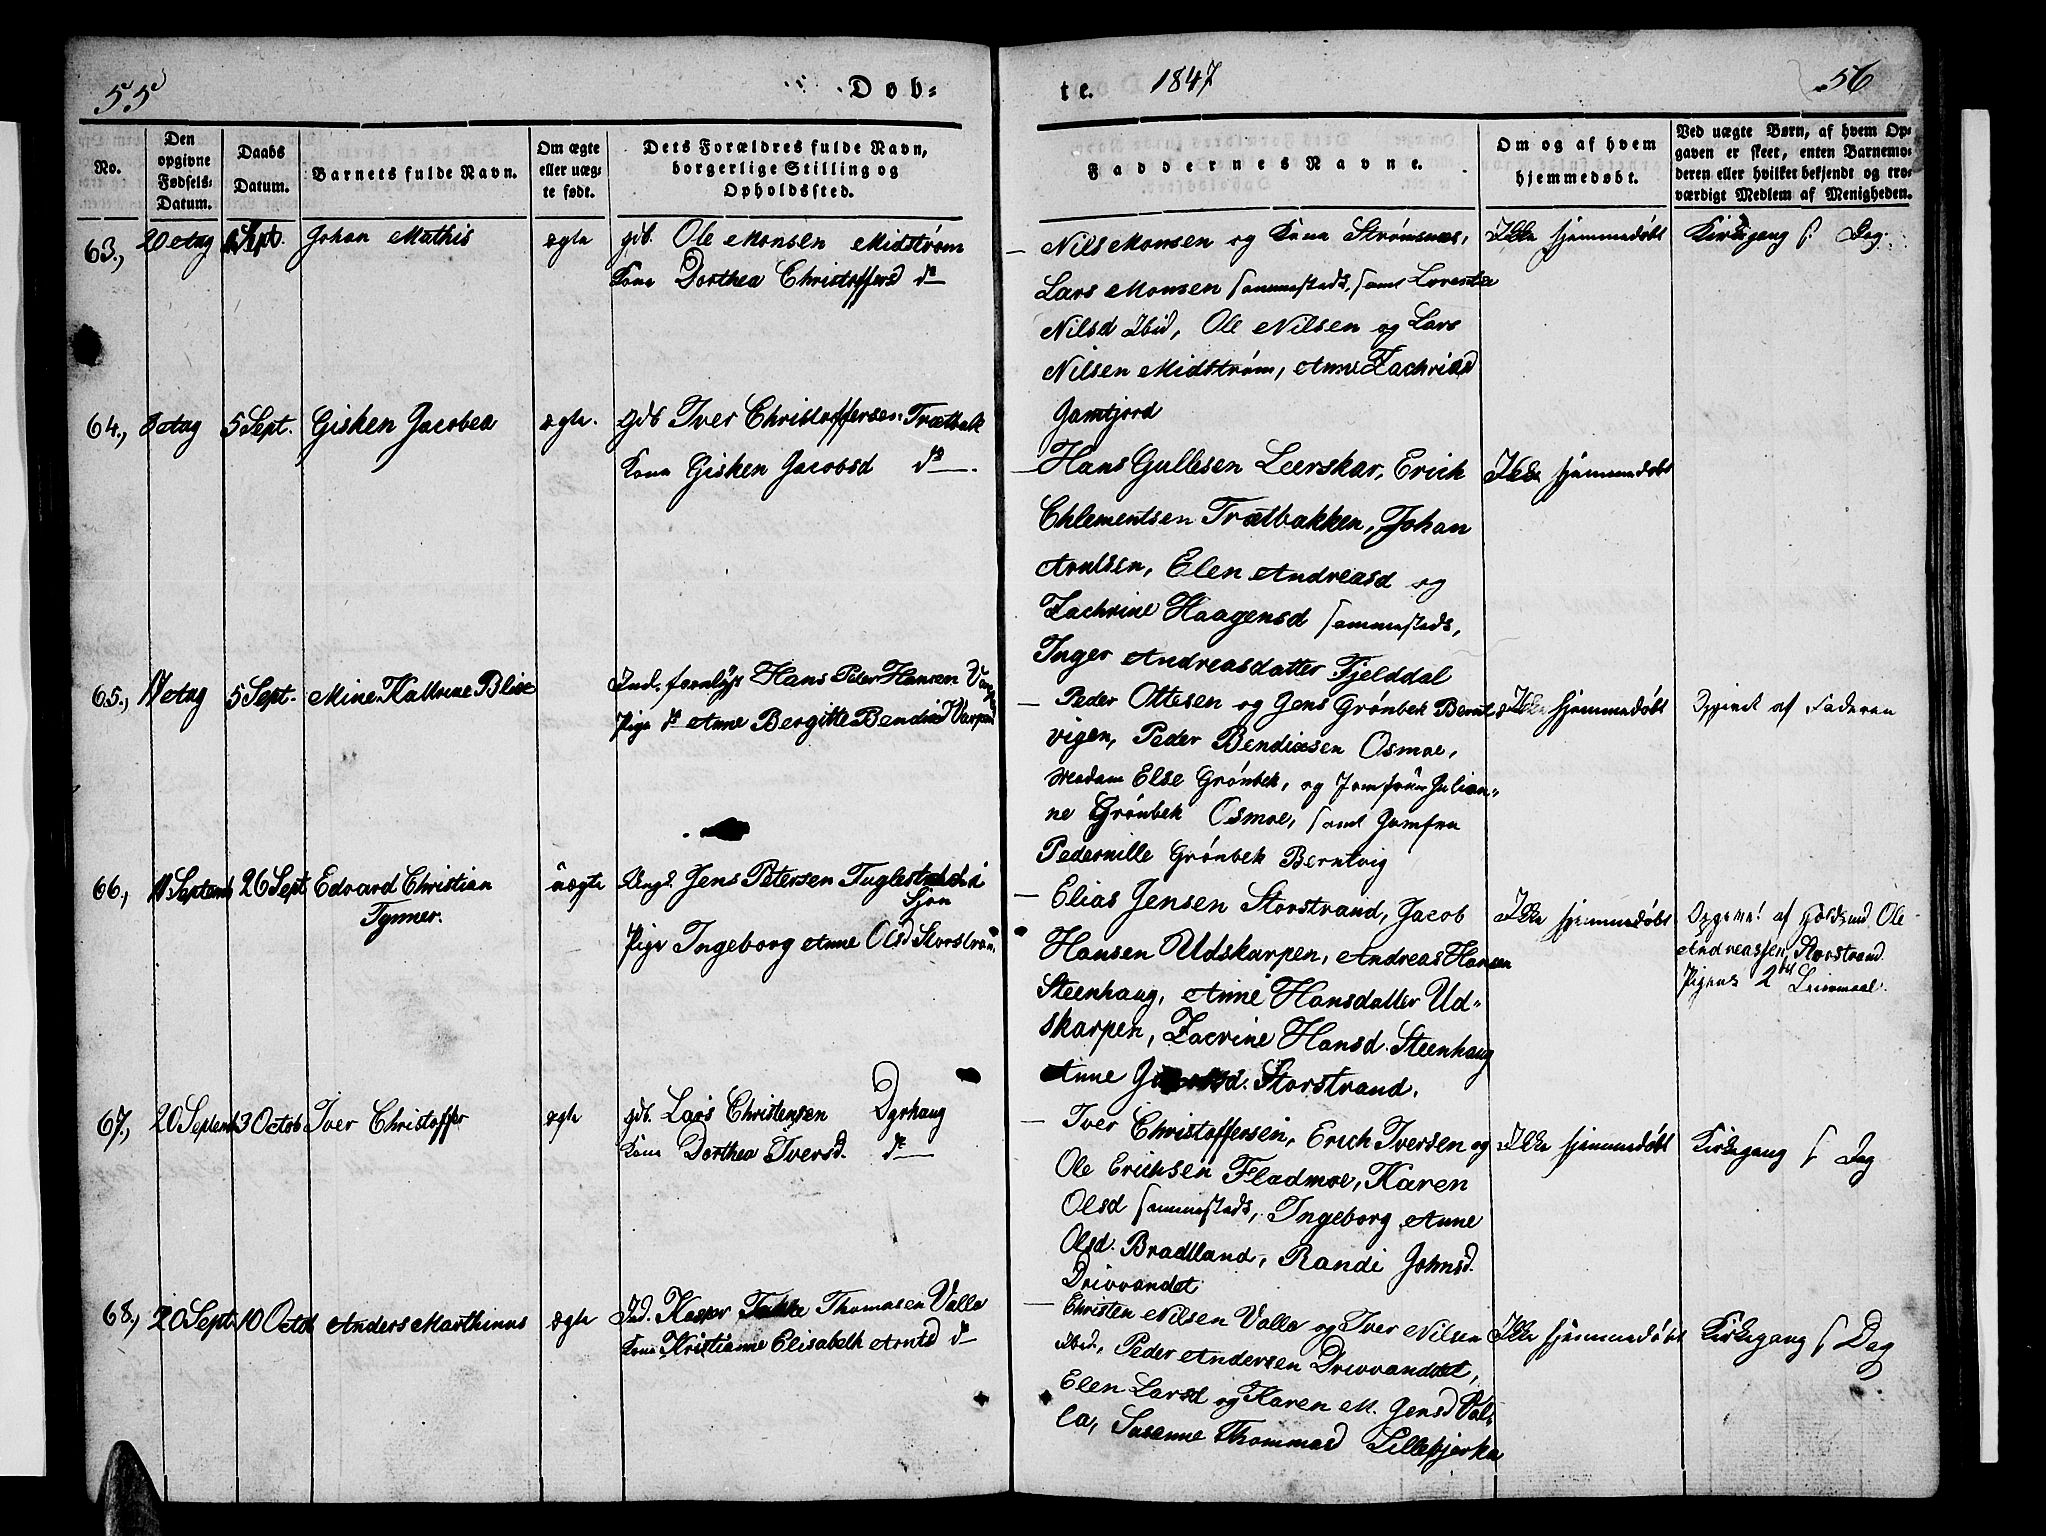 55
Døb-
te. 1847
56
No.
Den opgivne Fødsels-Datum.
Daabs Datum.
Barnets fulde Navn.
Om ægte eller uæg-te født.
Dets Forældres fulde Navn, borgerlige Stilling og Opholdssted.
Faddernes Navne.
Om og af hvem hjemmedøbt.
Ved uægte Børn, af hvem Op-gaven er skeet, enten Barnemo-deren eller hvilket bekjendt og tro-værdigt Medlem af Menigheden.
63., 20 Aug Sept. Johan Mathis ægte gdb. Ole Monsen Midstrøm
Kone Dorthea Christoffersd do
Nils Monsen og Kone Strømsnæs,
Lars Monsen sammesteds, samt Lorentse
Nilsd Ibid, Ole Nilsen og Lars
Nilsen Midtstrøm, Anne Zachrisd
Gamtjord
Ikke hjemmedøbt
Kirkegang s. Dag.
64., Aug 5 Sept. Gisken Jacobea ægte. Gdb Iver Christoffersen Trætbak
Kone Gisken Jacobsd do
Hans Gullesen Leerskar, Erich
Chlementsen Trætbakken, Johan
Arntsen, Elen Andreasd og
Zachrine Haagensd sammesteds,
Inger Andreasdatter Fjelddal
Ikke hjemmedøbt
65., Aug 5 Sept. Mine Kathrine Blix
Ind. Hans Peter Hansen
Pige Anne Bergitte Bendixd
Peder Ottesen og Jens Grønbek Bernt
vigen, Peder Bendixsen Osmoe,
Madam Else Grønbek, og Jomfrue Julian-
ne Grønbek Osmoe, samt Jomfru
Pedernille Grønbek Berntvig
Ikke hjemmedøbt
Opgivet af Faderen
66., Septemb 26 Sept Edvard Christian
Tynner.
uægte Ungk. Jens Petersen Fuglestad i
Sjon
Pige Ingeborg Anne Olsd Storstran
Elias Jensen Storstrand, Jacob
Hansen Udskarpen, Andreas Hansen
Steenhaug, Anne Hansdatter Ud-
skarpen, Zacrine Hansd. Steenhaug
Anne Storstrand.
Ikke hjemmedøbt
Opgivet af Ole
Andreassen Storstrand.
Pigens 2det Leiermaal.
67., 20 Septemb 3 Octob Iver Christoffer ægte gdb. Lars Christensen Dyrhaug
Kone Dorthea Iversd. do
Iver Christoffersen, Erich Iversen og
Ole Erichsen Fladmoe, Karen
Olsd sammesteds, Ingeborg Anne
Olsd. Bradtland, Randi Johnsd.
Drivvandet
Ikke hjemmedøbt
Kirkegang s Dag
68., 20 Sept 10 Octob Anders Marthinus ægte Ind. Kasper Thomasen Valle
Kone Kristianne Elisabeth Arntd do
Christen Nilsen Valle og Iver Nilsen
Ibid., Peder Andersen Drivvandet,
Elen Larsd og Karen M. Jensd Val-
la, Susanne Thommasd Lillebjerka
Ikke hjemmedøbt
Kirkegang s Dag